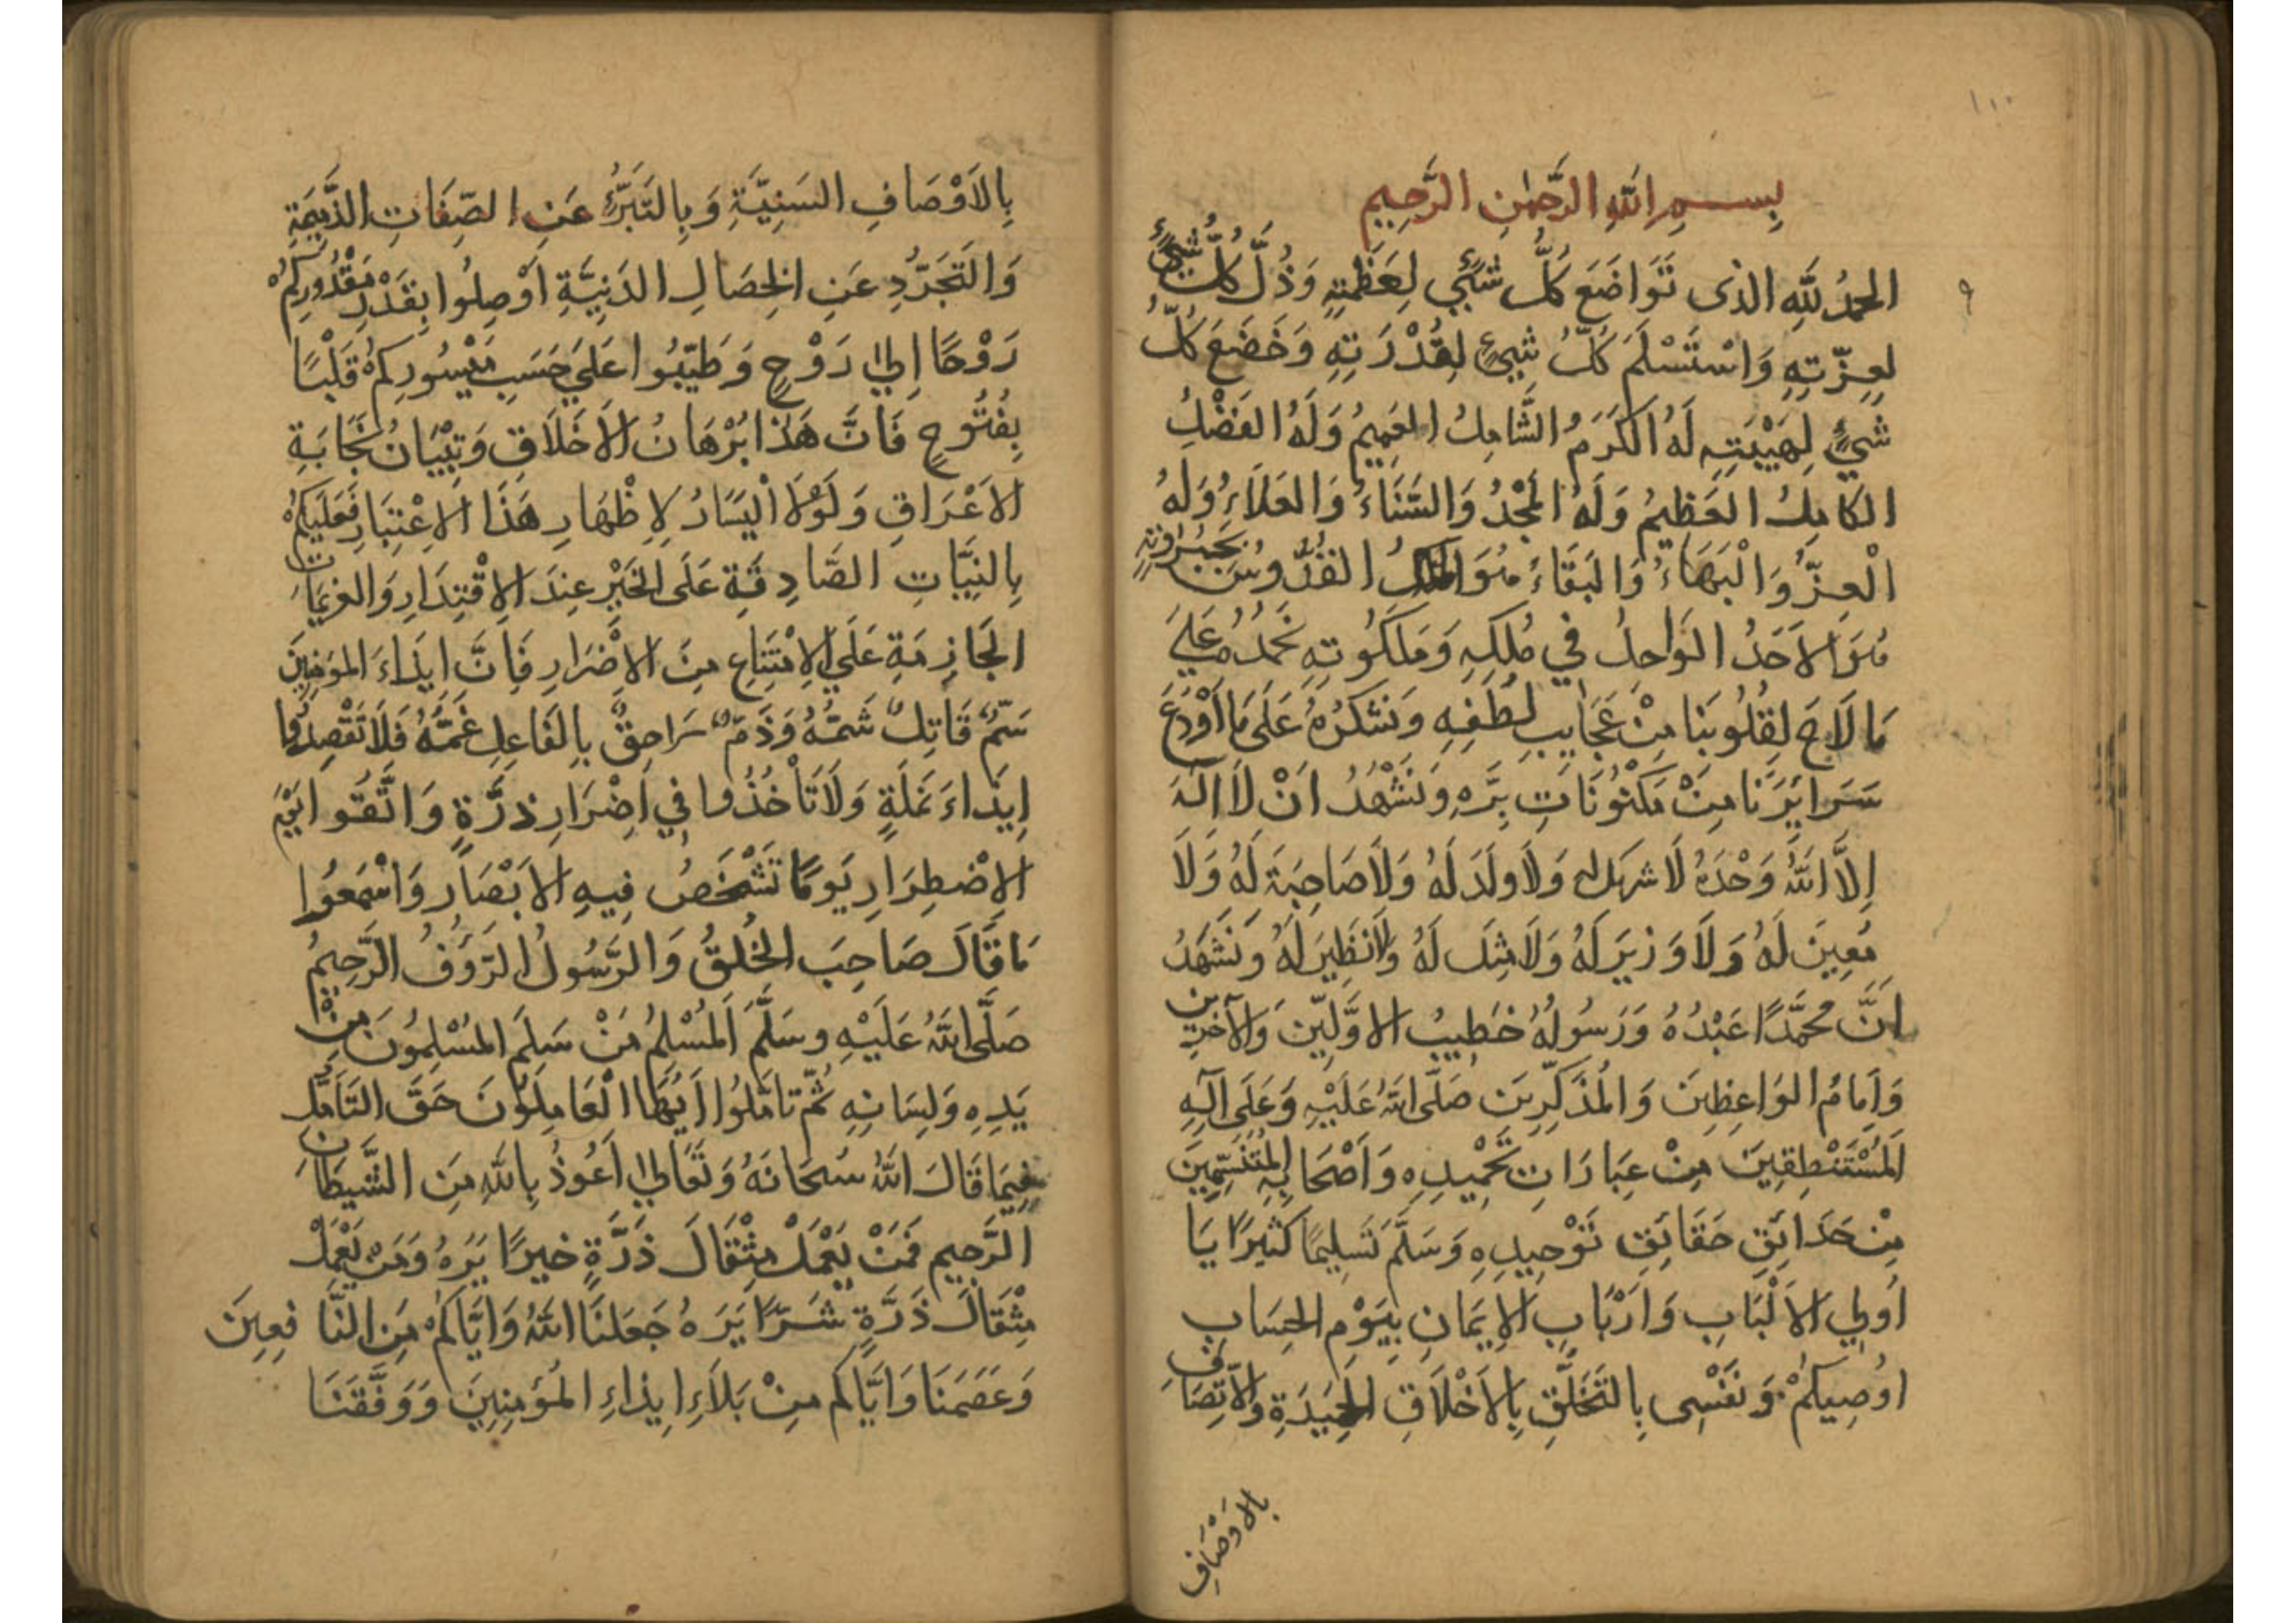 ١٠٠
بِسْمِ اللّٰهِ الرَّحْمٰنِ الرَّحِيمِ
٩
الحمدُ لِلّٰهِ الذى تَوَاضَعَ كُلُّ شَيْءٍ لِعَظْمَتِهِ وَذُلَّ كُلُّ شَيْءٍ
لِعِزَّتِهِ وَاسْتَسْلَمَ كُلُّ شَيْءٍ لِقُدْرَتِهِ وَخَضَعَ كُلُّ
شَيْءٍ لِهَيْبَتِهِ لَهُ الكَرَمُ الشَّامِلُ العَمِيمُ وَلَهُ الفَضْلُ
الكَامِلُ العَظِيمُ وَلَهُ المَجْدُ وَالسَّنَاءُ وَالعَلَاءُ وَلَهُ
الْعِزُّ وَالْبَهَاءُ وَالبَقَاءُ هُوَ المَلِكُ القُدُّوسُ بِجَبَرُوتِهِ
هُوَ الاَحَدُ الوَاحِدُ في مُلكِهِ وَمَلَكُوتِهِ نَحْمَدُهُ عَلىَ
مَا لَاحَ لِقُلُوبِنَا مِنْ عَجَايِبِ لُطْفِهِ وَنَشْكُرُهُ عَلَى مَا اَوْدَعَ
سَرَايِرَنَا مِنْ مَكْنُونَاتِ بِرِّهِ وَنَشْهَدُ اَنْ لَا اِلٰهَ
اِلَّا اللّٰهُ وَحْدَهُ لَا شريك له وَلَا وَلَدَ لَهُ وَلَا صَاحِبَةَ لَهُ وَلَا
مُعِينَ لَهُ وَلَا وَزيرَ لَهُ وَلَا مِثلَ لَهُ وَلَا نَظِيرَ لَهُ وَنَشْهَدُ
اَنَّ مُحَمَّدًا عَبْدُهُ وَرَسُولُهُ خَطِيبُ الاَوَّلِينَ وَالآخرِين
وَاِمَامُ الوَاعِظِينَ وَالمُذَكِّرِينَ صَلَّى اللّٰهُ عَلَيْهِ وَعَلَى آلِهِ
المُسْتَنْطِقِينَ مِنْ عِبَارَاتِ تَحْمِيدِهِ وَاَصْحَابِهِ المُتَنَسِّمِينَ
مِنْ حَدَائِقِ حَقَائِقِ تَوْحِيدِهِ وَسَلَّمَ تَسْلِيمًا كَثِيرًا يَا
اُولِي الاَلْبَابِ وَاَرْبَابِ الاِيمَانِ بِيَوْمِ الحِسَابِ
اُوصِيكُمْ وَنَفْسِى بِالتَخَلُّقِ بِالاَخْلَاقِ الحَمِيدَةِ وَالاِتِّصَافِ
بالاَوْصَافِ
بِالاَوْصَافِ السَنِيَّةِ وَبِالتَّبَرُّءِ عَنِ الصِّفَاتِ الذَّمِيمَةِ
وَالتَّجَرُّدِ عَنِ الخِصَالِ الدَنِيَّةِ اَوْصِلُوا بِقَدْرِ مَقْدُورِكُمْ
رَوْحًا اِلىٰ رَوْحٍ وَطَيِّبُوا عَلىَ حَسَبِ مَيْسُورِكُمْ قَلْبًا
بِفُتُوحٍ فَاِنَّ هَذَا بُرْهَانُ الاَخلَاقِ وَتِبْيَانُ نَجَابَةِ
الاَعْرَاقِ وَلَوْلَا اليَسَارُ لِاِظْهَارِ هَذَا الاِعْتِبَارِ فَعَلَيكُمْ
بِالنِيَّاتِ الصَّادِقَةِ عَلَى الخَيْرِ عِندَ الاِقْتِدَارِ وَالعَزيمَاتِ
الجَازِمَةِ عَلَي الاِمْتِنَاعِ مِنَ الاِضْرَارِ فَاِنَّ ايذَاءَ المؤمِنِينَ
سَمٌّ قَاتِلٌ شَمُّهُ وَذَمٌّ لَاحِقٌ بِالفَاعِلِ غَمُّهُ فَلَا تَقْصِدُوا
اِيذَاءَ نَمْلَةٍ وَلَا تَأْخُذُوا فِي اِضْرَارِ ذَرَّةٍ وَاتَّقُوا اَيُّهمَ
الاِضْطِرَارِ يَومًا تَشْخَصُ فِيهِ الاَبْصَارُ وَاسْمَعُوا
مَا قَالَ صَاحِبَ الخُلقُ وَالرَّسُولُ الرَّؤُفُ الرَّحِيمُ
صَلَّى اللّٰهُ عَلَيْهِ وسَلَّمَ اَلمُسْلِمُ مَنْ سَلِمَ المُسْلِمُونَ مِنْ
يَدِهِ وَلِسَانِهِ ثُمَّ تَامَّلُوا اَيُّهَا الْعَامِلُونَ حَقَ التَأَمُّلِ
فِيمَا قَالَ اللّٰهُ سُبحَانَهُ وَتَعَالىٰ اَعُوذُ بِاللّٰهِ مِنَ الشَّيطَانِ
الرَّجِيمِ فَمَنْ يَعْمَلْ مِثْقَالَ ذَرَّةٍ خَيرًا يَرَهُ وَمَن يَعْمَلْ
مِثْقَالَ ذَرَّةٍ شَرًّا يَرَهُ جَعَلنَا اللّٰهُ وَاِيَّاكُمْ مِنَ النَّافِعِينَ
وَعَصَمَنَا وَاِيَّاكُم مِنْ بَلَاءِ اِيذَاءِ المُؤمِنِينَ وَوَفَّقَنَا